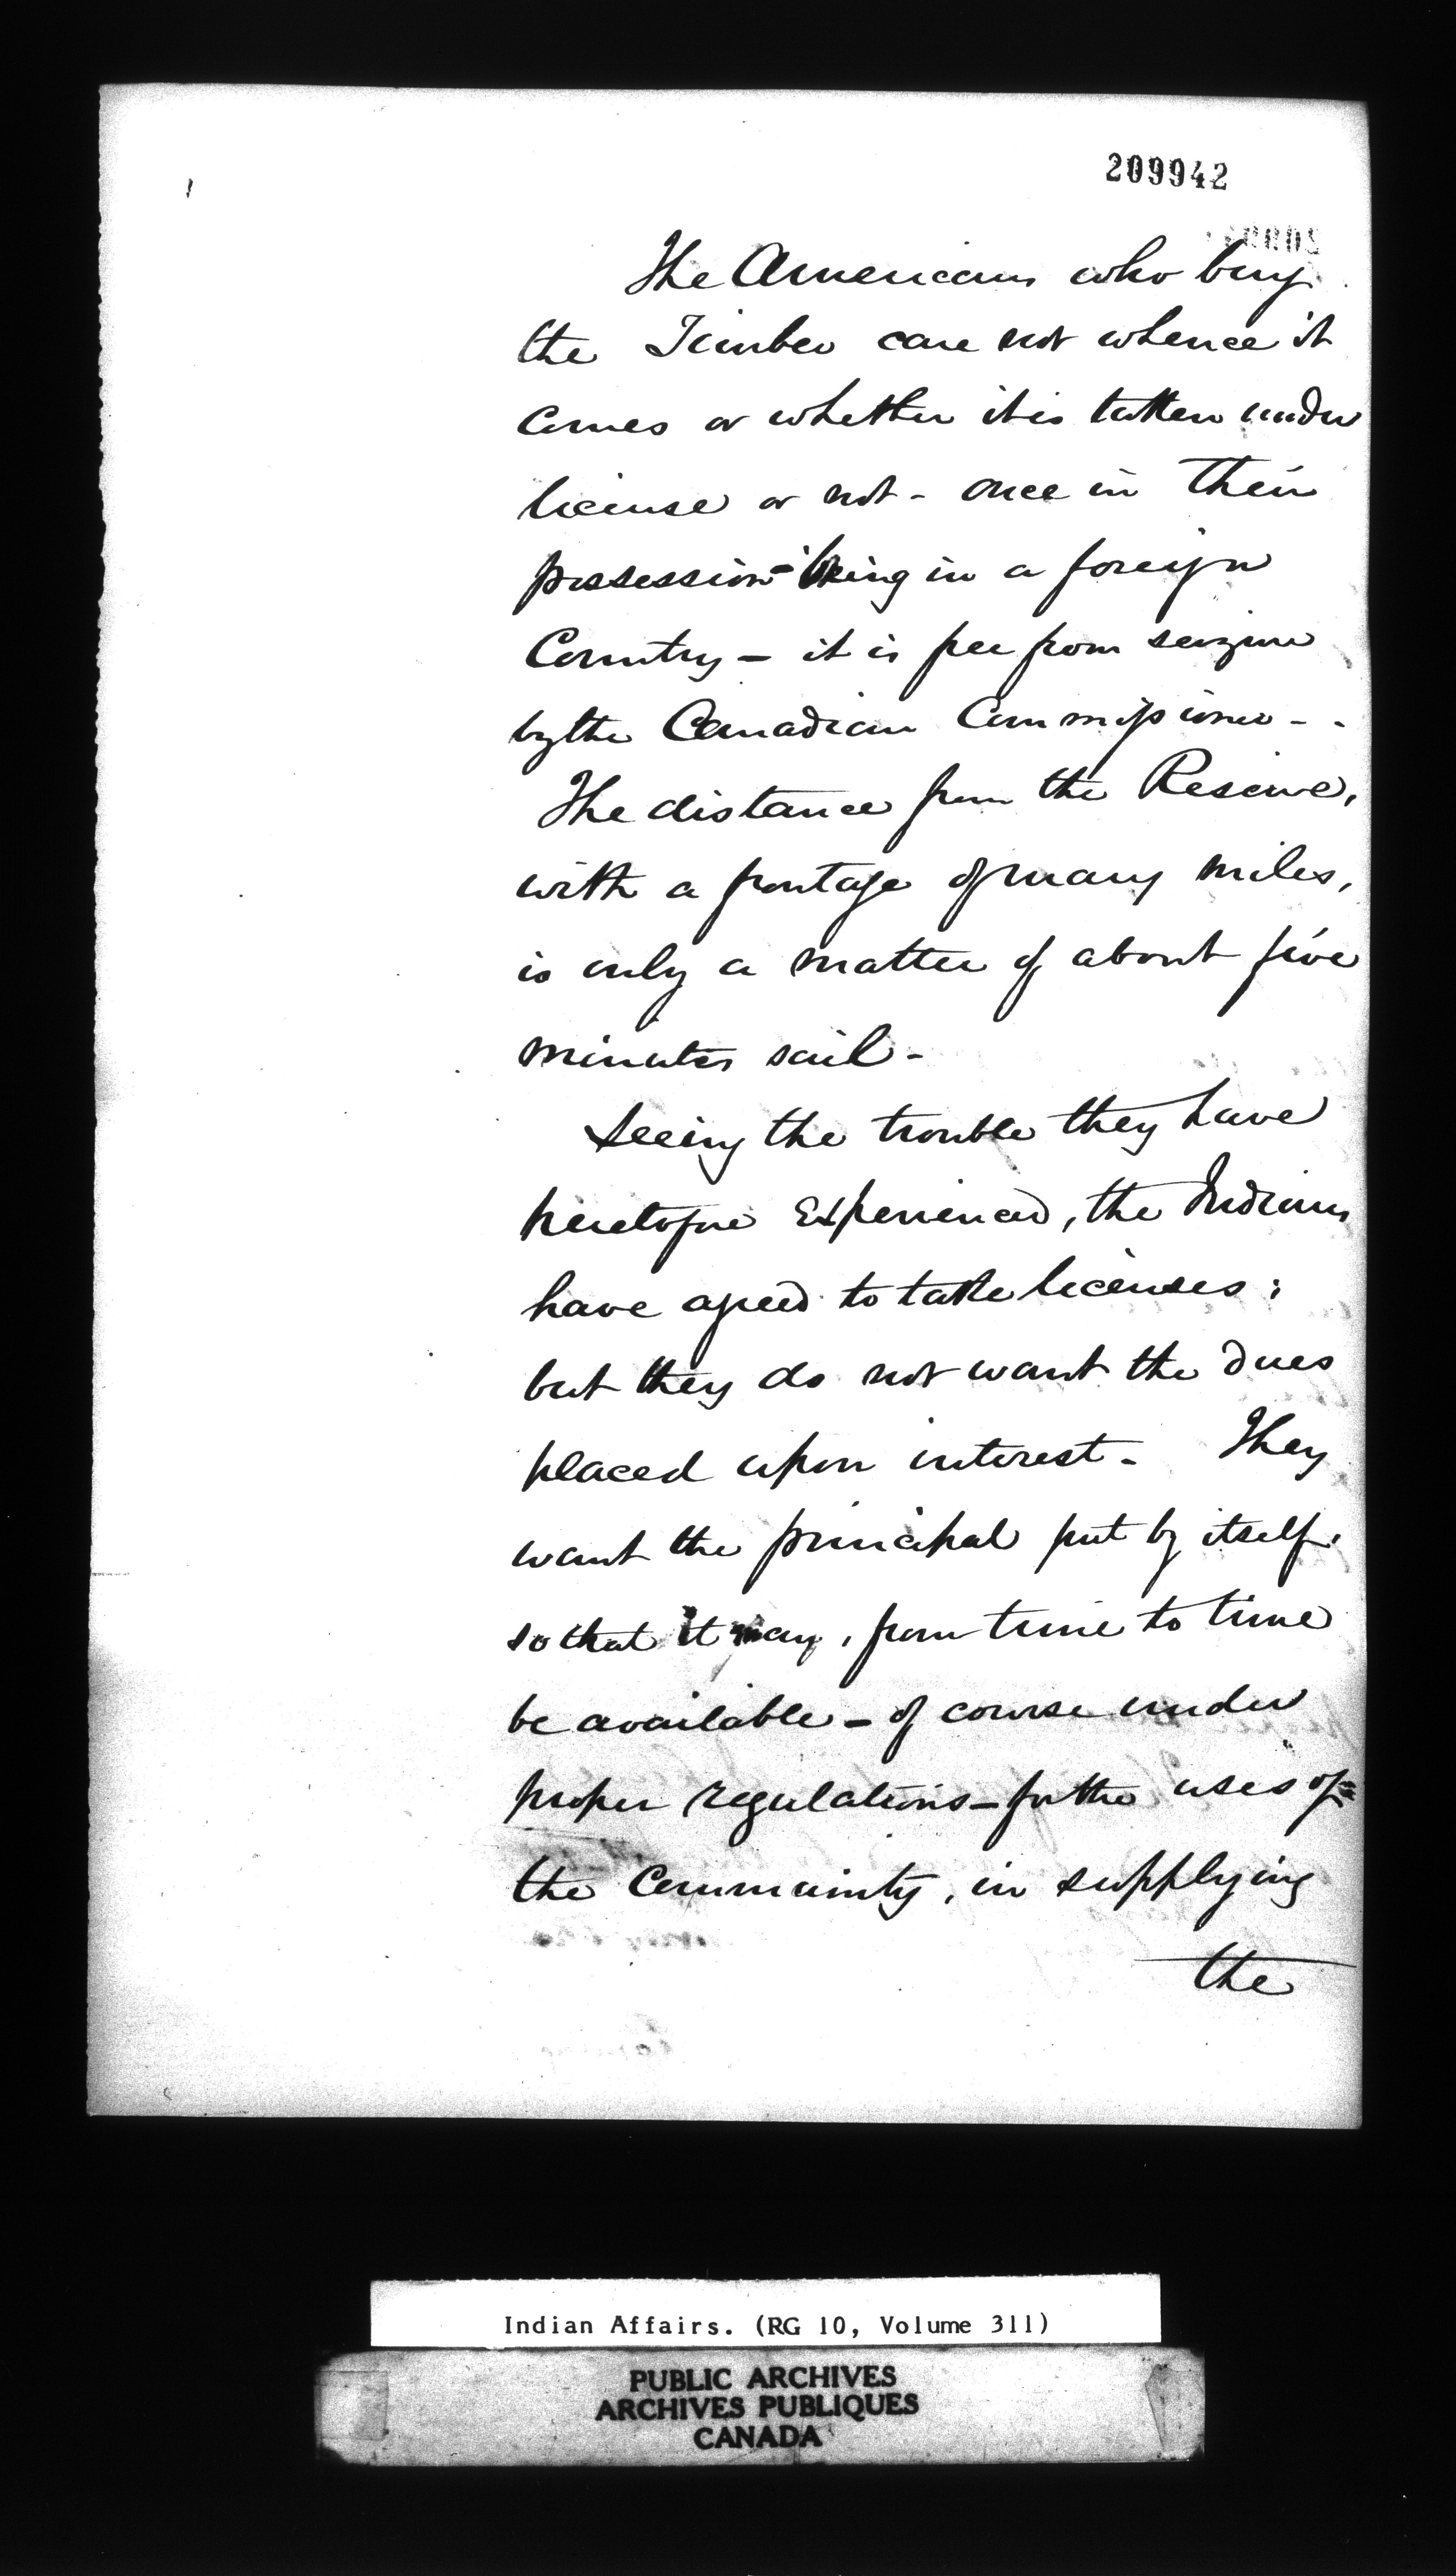 209942
The Americans who buy
the Timber care not whence it
comes or whether it is taken under
license or not - once in their
possession - being in a foreign
Country - it is free from seizure
by the Canadian Commissioner - -
The distance from the Reserve,
with a frontage of many miles,
is only a matter of about five
minutes sail -
Seeing the trouble they have
heretofore experienced, the Indians
have agreed to take licenses;
but they do not want the dues
placed upon interest - They
want the principal put by itself,
so that it may, from time to time
be available - of course under
proper regulations - for the uses of
the Community, in supplying
the
Indian Affairs. (RG 10, Volume 311)
PUBLIC ARCHIVES
ARCHIVES PUBLIQUES
CANADA